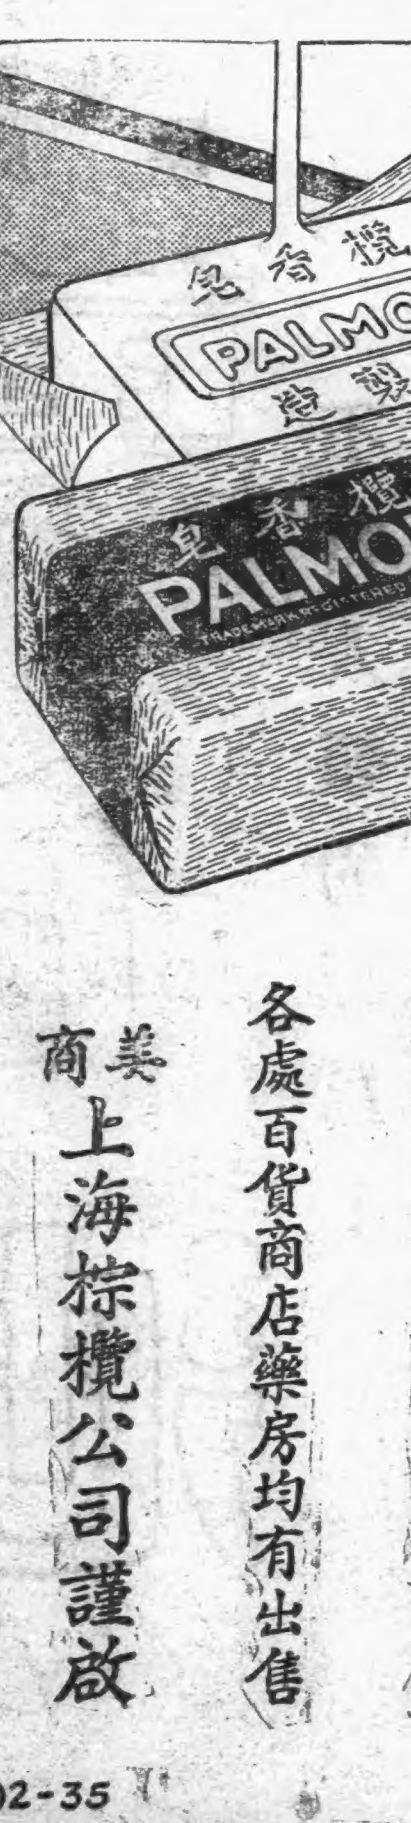 皂香欖
PALMO
造製
皂香欖
PALMO
TRADEMARK REGISTERED
各處百貨商店藥房均有出售
美商
上海棕欖公司謹啟
2-35